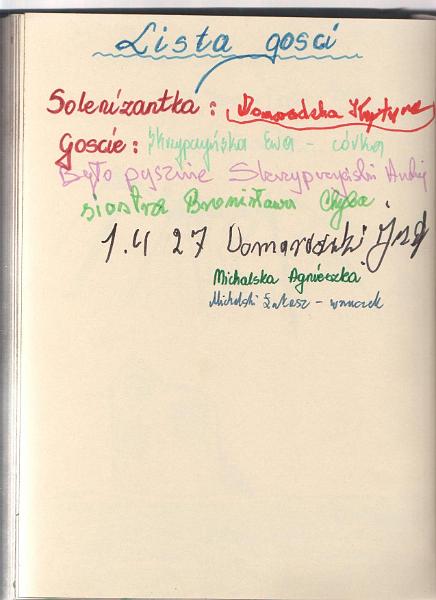 Lista gosci
Solenizantka : Domaradzka Krystyna
Goscie : Skrzypczyńska Ewa - córka
Było pysznie Skrzypczyński Andrzej
siostra Bronisława Chyba
1.4 27 Domaradzki
Michalska Agnieszka
Michalski Łukasz - wnuczek